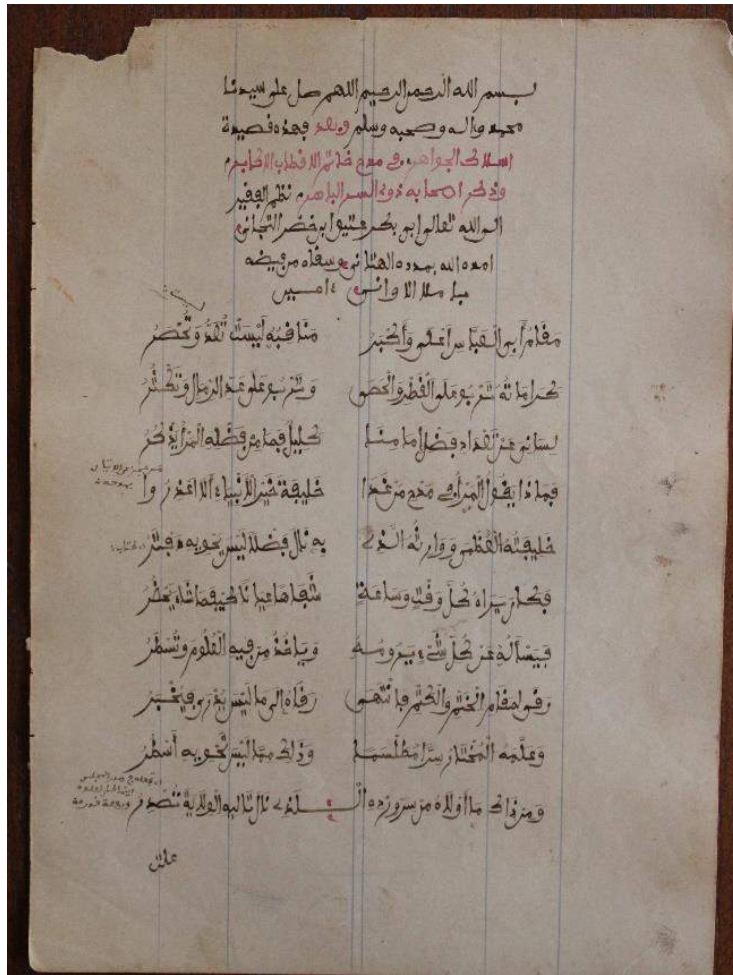 بسم الله الرحمن الرحيم اللهم صل على سيدنا
محمد وآله وصحبه وسلم وبعد فهذه قصيدة
اسلاك الجواهر في مدح خاتم الاقطاب الاكابر
وذكر اصحابه ذوي السر الباهر نظم الفقير
الى الله تعالى ابي بكر عتيق ابن خضر التجاني
امده الله بمدده الهتاني وسقاه من فيضه
باملا الاواني ءامين
مقام أبي العباس أعلى وأكبر مناقبه ليست تعد وتحصر
كراماته تربو على القطر والحصى وتربو على عد الرمال وتكثر
لساني عن تعداد فضل إمامنا كليل فما من فضله المرء يذكر
فماذا يقول المرء في مدح من غدا خليفة خير الأنبياء ألا اعذروا
خليفته العظمى ووارثه الذي به نال فضلا ليس يحويه دفتر
فكان يراه كل وقت وساعة شفاها عيانا كيفما شاء يعفر
فيسأله عن كل شيء يرومه ويأخذ منه فيه العلوم وتسطر
رقى لمقام الختم والكتم فانتهى رقاه إلى ما ليس يدرى فيخبر
وعلمه المختار سرا مطلسما وذاك مما ليس تحويه أسطر
ومن ذاك ما أولاه من سر ورده الذي نال تاليه الولاية تصدر